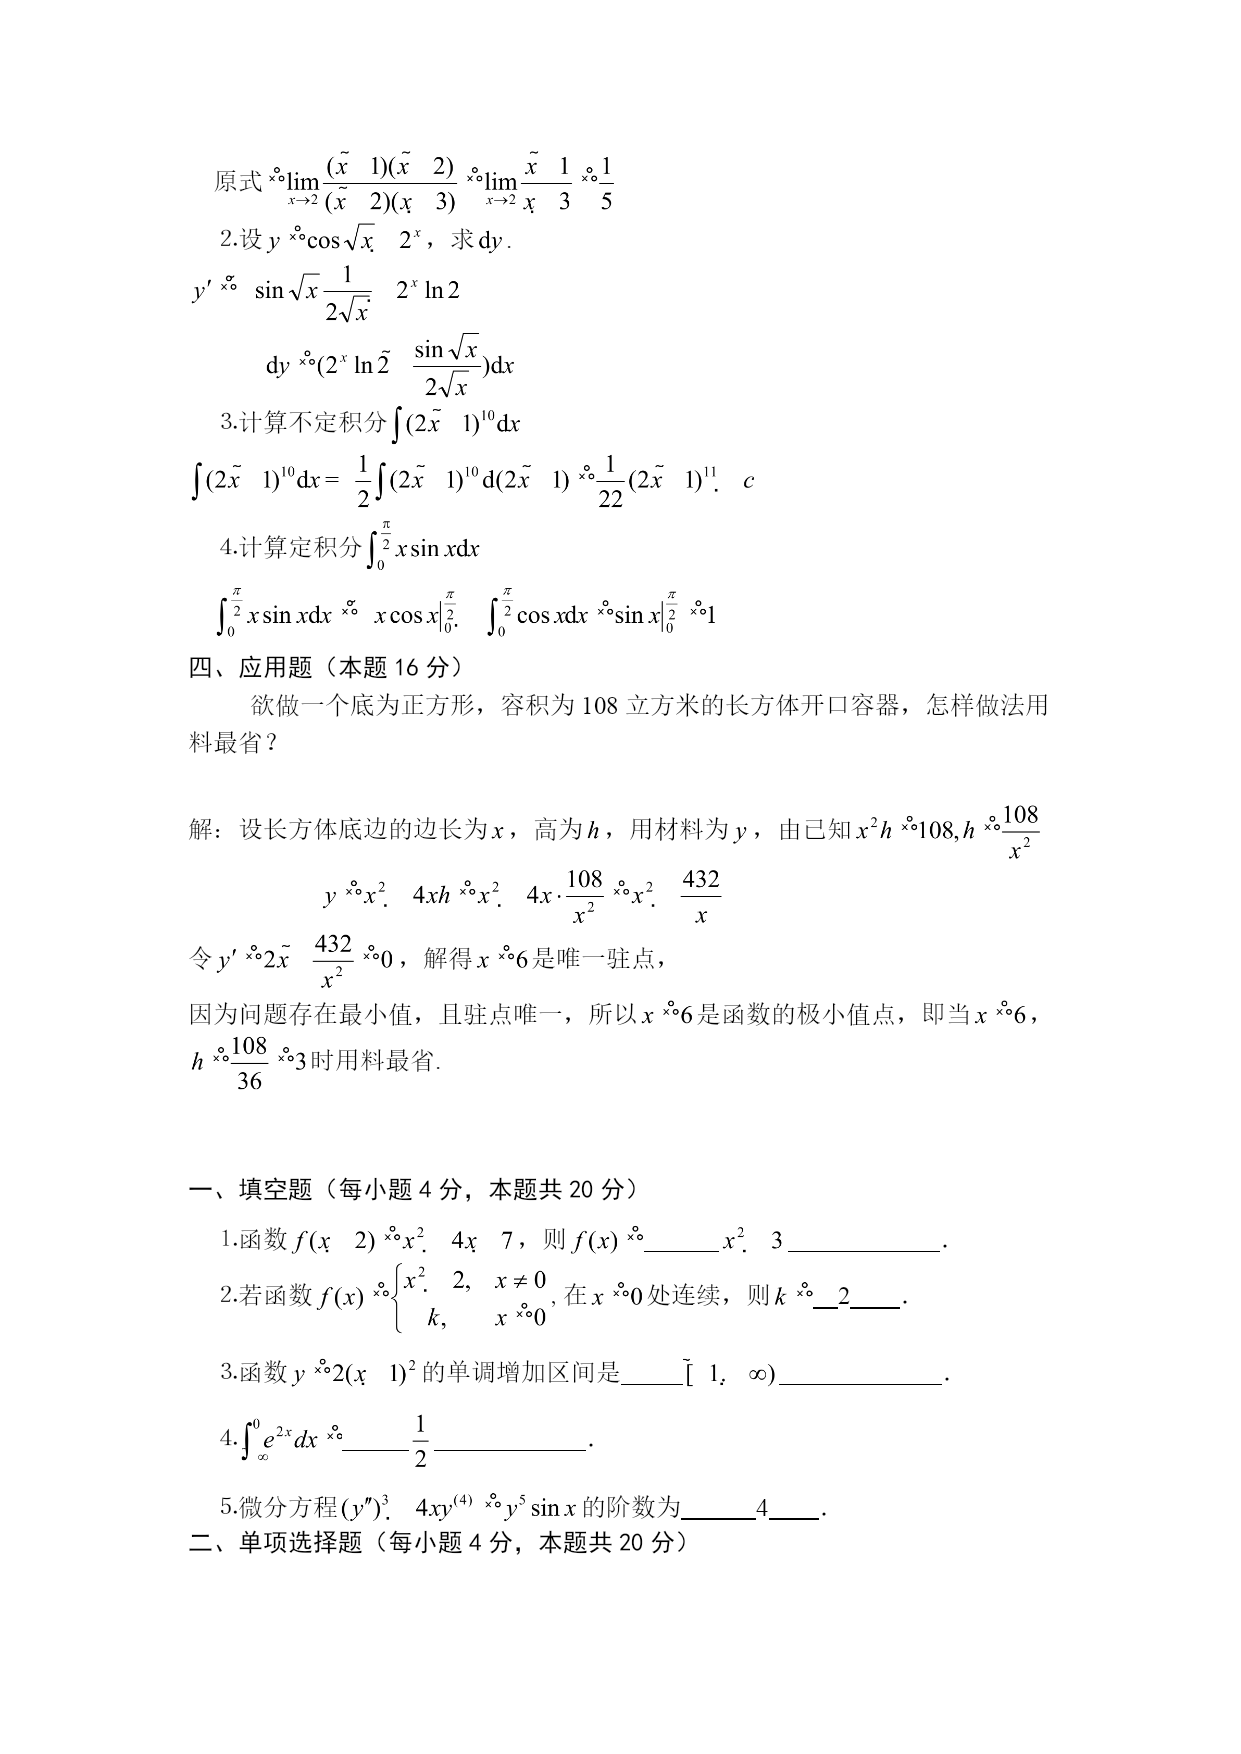 原式 ×°° lim x→2 (x̃ 1)(x̃ 2)/(x̃ 2)(x̣ 3) ×°° lim x→2 (x̃ 1)/(x̣ 3) ×°° 1/5
2.设 y ×°° cos√x. 2ˣ，求dy.
y′ ×°~ sin√x 1/(2√x). 2ˣ ln 2
dy ×°° (2ˣ ln 2̃ sin√x/(2√x))dx
3.计算不定积分∫(2x̃ 1)¹⁰dx
∫(2x̃ 1)¹⁰dx = 1/2 ∫(2x̃ 1)¹⁰ d(2x̃ 1) ×°° 1/22 (2x̃ 1)¹¹. c
4.计算定积分∫₀^(π/2) x sin xdx
∫₀^(π/2) x sin xdx ×°~ x cos x|₀^(π/2). ∫₀^(π/2) cos xdx ×°° sin x|₀^(π/2) ×°° 1
四、应用题（本题 16 分）
欲做一个底为正方形，容积为 108 立方米的长方体开口容器，怎样做法用
料最省？
解：设长方体底边的边长为 x，高为 h，用材料为 y，由已知 x²h ×°° 108, h ×°° 108/x²
y ×°° x². 4xh ×°° x². 4x · 108/x² ×°° x². 432/x
令 y′ ×°° 2x̃ 432/x² ×°° 0，解得 x ×°° 6是唯一驻点，
因为问题存在最小值，且驻点唯一，所以 x ×°° 6是函数的极小值点，即当 x ×°° 6，
h ×°° 108/36 ×°° 3时用料最省.
一、填空题（每小题 4 分，本题共 20 分）
1.函数 f(x̣ 2) ×°° x². 4x̣ 7，则 f(x) ×°° ______ x². 3 ____________．
2.若函数 f(x) ×°° { x². 2, x ≠ 0
k, x ×°° 0 , 在 x ×°° 0处连续，则 k ×°° __2____．
3.函数 y ×°° 2(x̣ 1)² 的单调增加区间是_____[̃ 1. ∞)_____________．
4.∫ ∞ ⁰ e²ˣdx ×°° ______ 1/2 ____________．
5.微分方程(y″)³. 4xy⁽⁴⁾ ×°° y⁵ sin x 的阶数为______4____．
二、单项选择题（每小题 4 分，本题共 20 分）